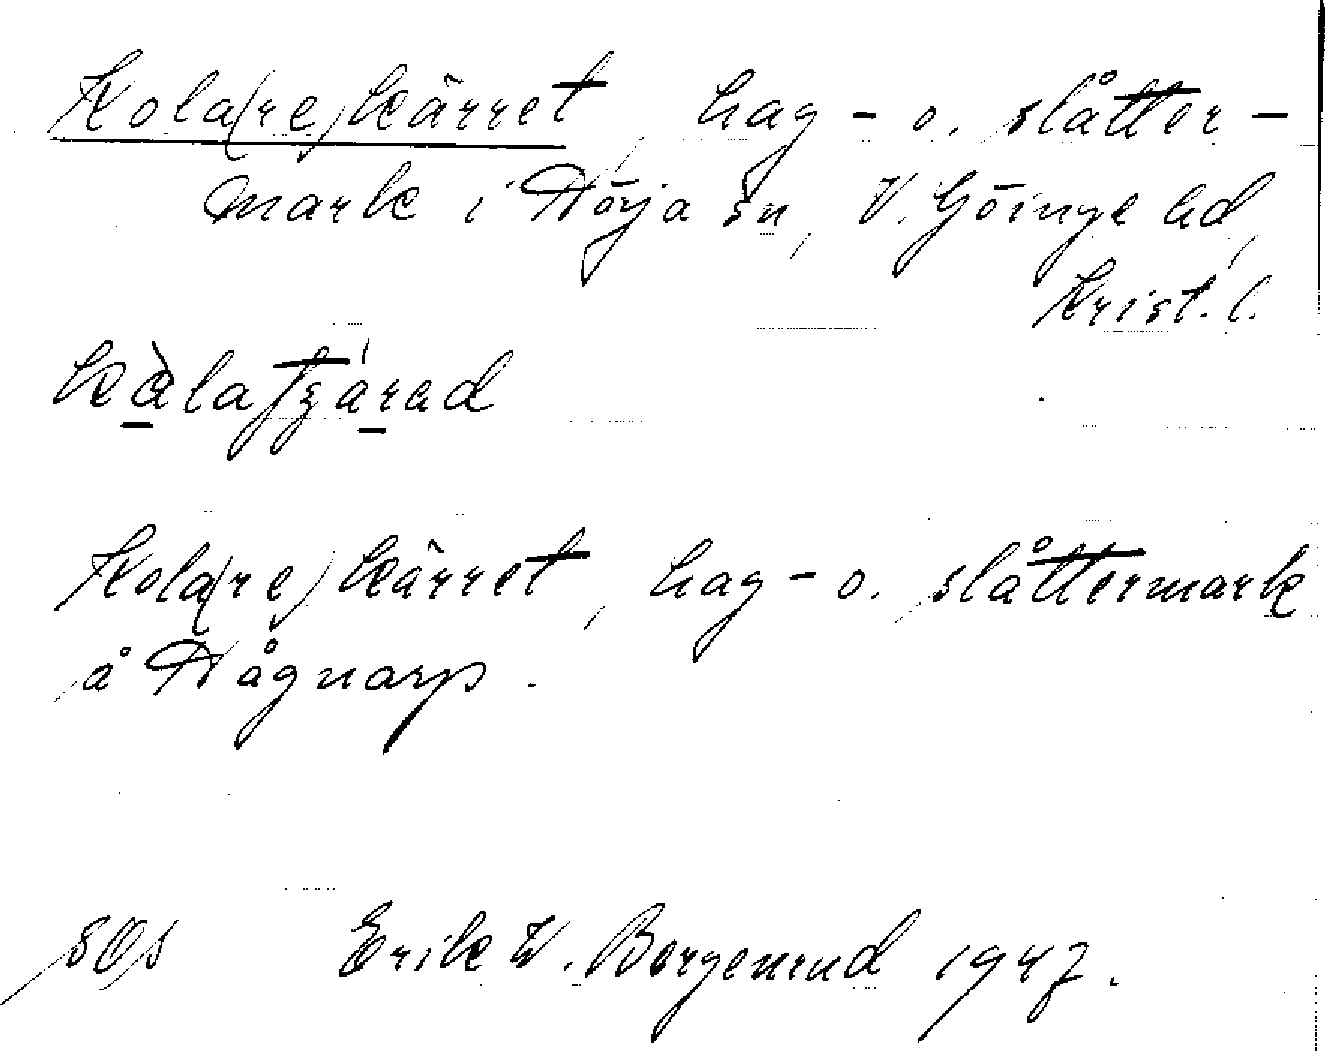 Kola(re)kärret, hag- o. slåtter-
mark i Nörja sn, V. Göinge hd,
Krist. l.
Kola(re)kärret, hag- o. slåttermark
å Hågnarp.
Erik W. Borgenrud 1947.